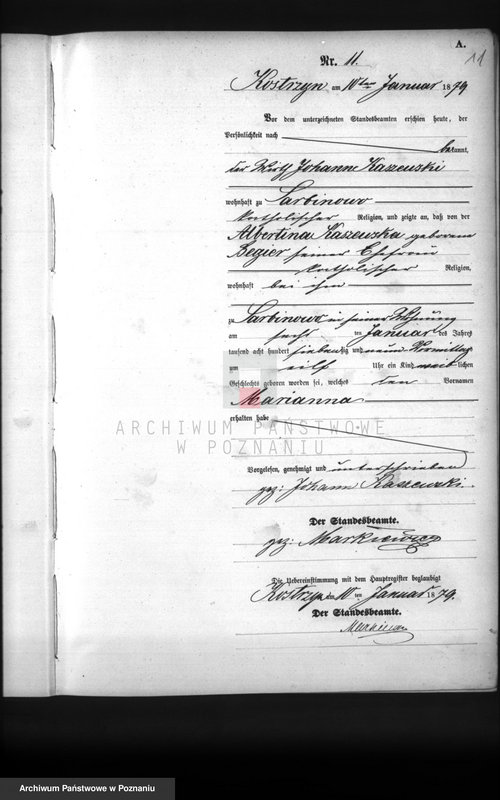 A.
11
Nr. 11.
Kostrzyn am 10ten Januar 1879
Vor dem unterzeichneten Standesbeamten erschien heute, der
Persönlichkeit nach
bekannt,
der Wirth Johann Kaszewski
wohnhaft zu Sarbinowo
katholischer Religion, und zeigte an, daß von der
Albertina Kaszewska geborenen
Begier seiner Ehefrau
katholischer Religion,
wohnhaft bei ihm
zu Sarbinowo in seiner Wohnung
am sechs ten Januar des Jahres
tausend acht hundert siebenzig und neun Vormittag
um eilf Uhr ein Kind weiblichen
Geschlechts geboren worden sei, welches den Vornamen
Marianna
erhalten habe
Vorgelesen, genehmigt und unterschrieben
gez: Johann Kaszewski
Der Standesbeamte.
gez: Markiewicz
Die Uebereinstimmung mit dem Hauptregister beglaubigt
Kostrzyn am 10 ten Januar 1879.
Der Standesbeamte.
ARCHIWUM PAŃSTWOWE
W POZNANIU
Archiwum Państwowe w Poznaniu